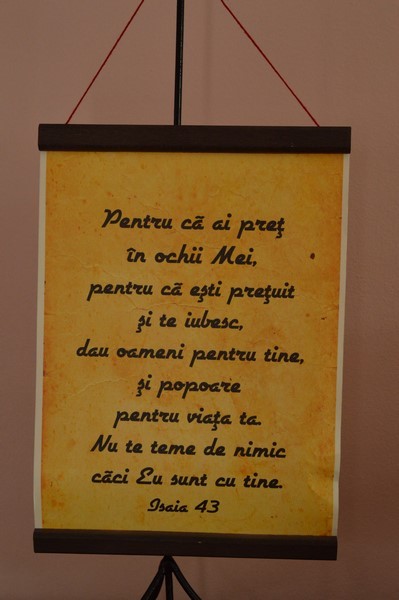 Pentru că ai preţ
în ochii Mei,
pentru că eşti preţuit
şi te iubesc,
dau oameni pentru tine,
şi popoare
pentru viaţa ta.
Nu te teme de nimic
căci Eu sunt cu tine.
Isaia 43